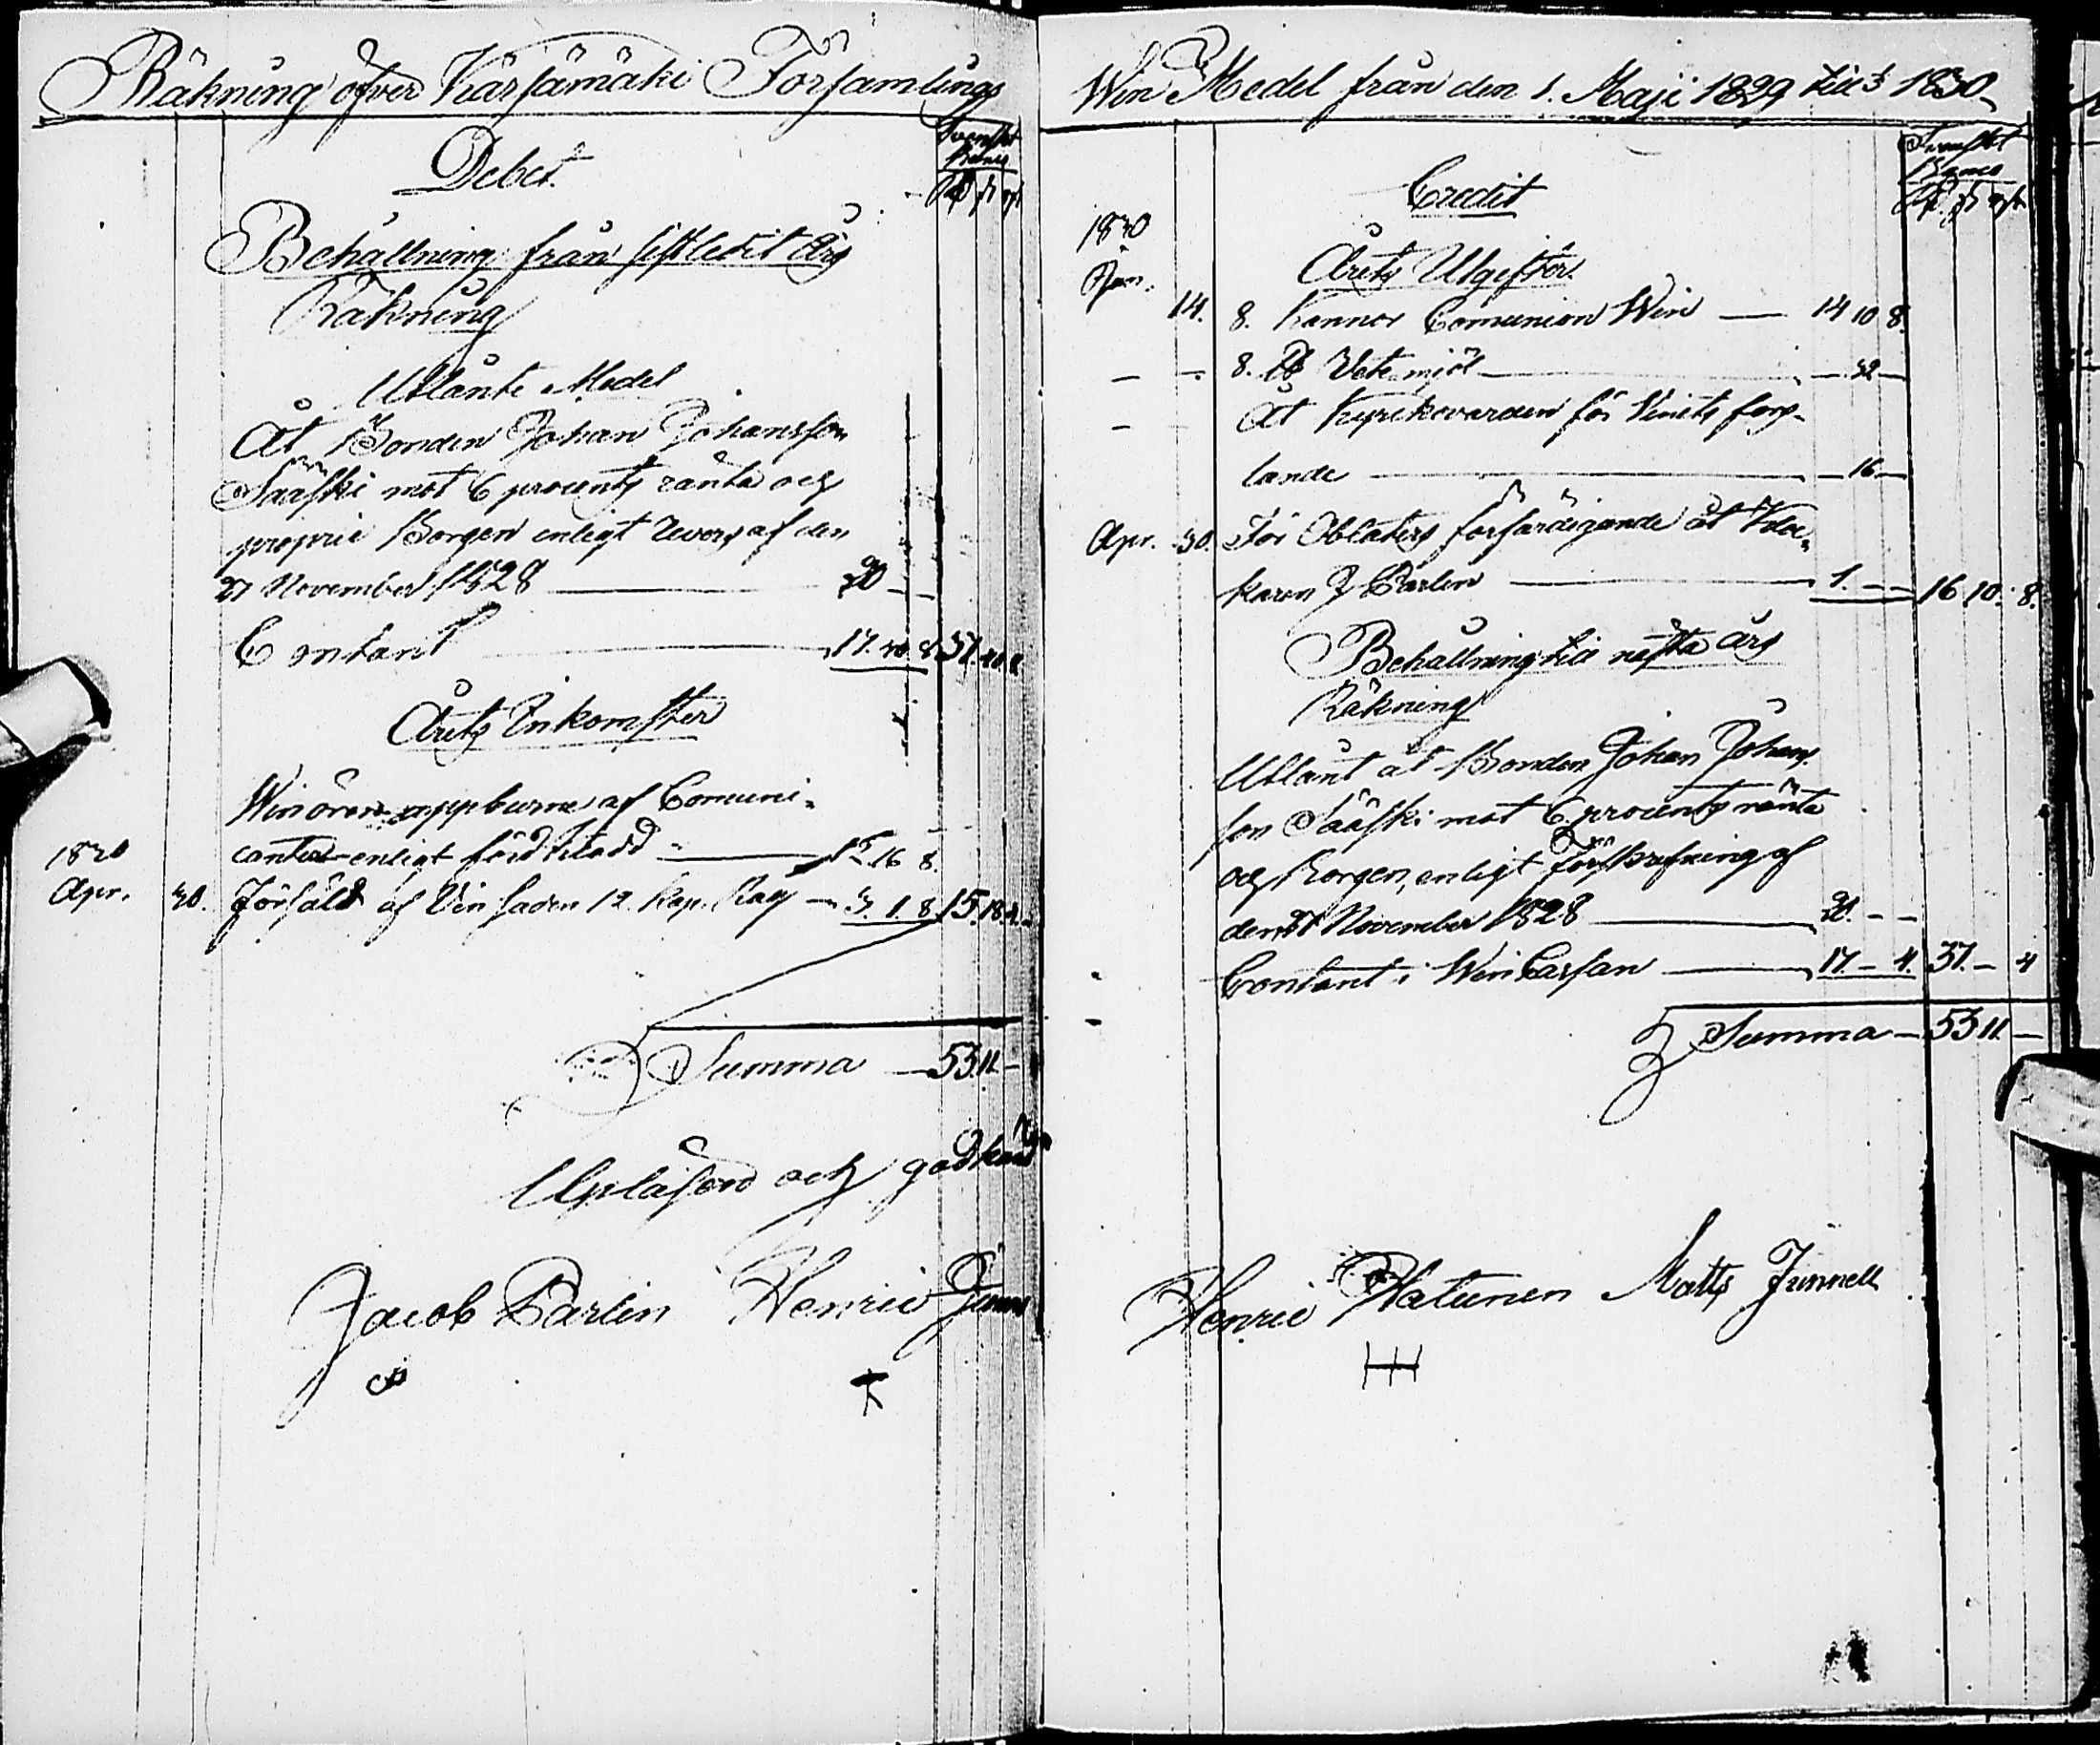 Räkning öfver Kärsämäki Församlings
Debet.
Svenskt
Banco
Rd ß rst
Behållning från sistledit Års
Räkning
Utlånte Medel
Åt Bonden Johan Johansson
Sääski mot 6 procents ränta och
proprie Borgen enligt Revers af den
27 November 1828 — 20 - -
Contant — 17. 40. 8. 37. 40. 8
Årets Inkomster
Winören uppburne af Comuni-
1830
canter enligt förd Längd — 12. 16 8.
Apr. 30. Försåld af Vin Saden 12 Kap. Råg — 3. 1. 8. 15. 18. 4.
Summa — 53. 11. -
Upläsen och godkänd
Jacob Carlin Henric Junn
Win Medel från den 1. Maji 1829 till 1830
Credit
Svenskt
Banco
Rd. ß rst
1830
Årets Utgifter.
Jan. 14. 8. Kannor Comunion Win — 14 10 8.
- - 8. ℔ Vetemjöl — - 32 -
- Åt Kyrkovärden för Vinets forg-
lande — - 16 -
Apr. 30. För Oblaters förfärdigande åt Kloc-
karen J Carlin — 1. - - 16. 10. 8.
Behållning till nästa års
Räkning
Utlånt åt Bonden Johan Johans-
son Sääski mot 6 procents ränta
och Borgen, enligt Förskrifning af
den 27 November 1828 — 20. - -
Contant i Win Cassan — 17. - 4. 37. - 4
Summa — 53 11. -
Henric Hatunen Matts Junnell